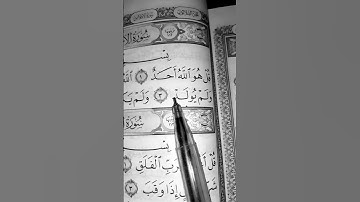 سُورَةُ الْإِ
بِسْ
قُلْ هُوَ اللَّهُ أَحَدٌ ١ اللَّ
وَلَمْ يُولَدْ ٣ وَلَمْ يَ
سُورَةُ
بِسْ
قُلْ أَ رَبِّ الْفَلَقِ
إِذَا وَقَبَ